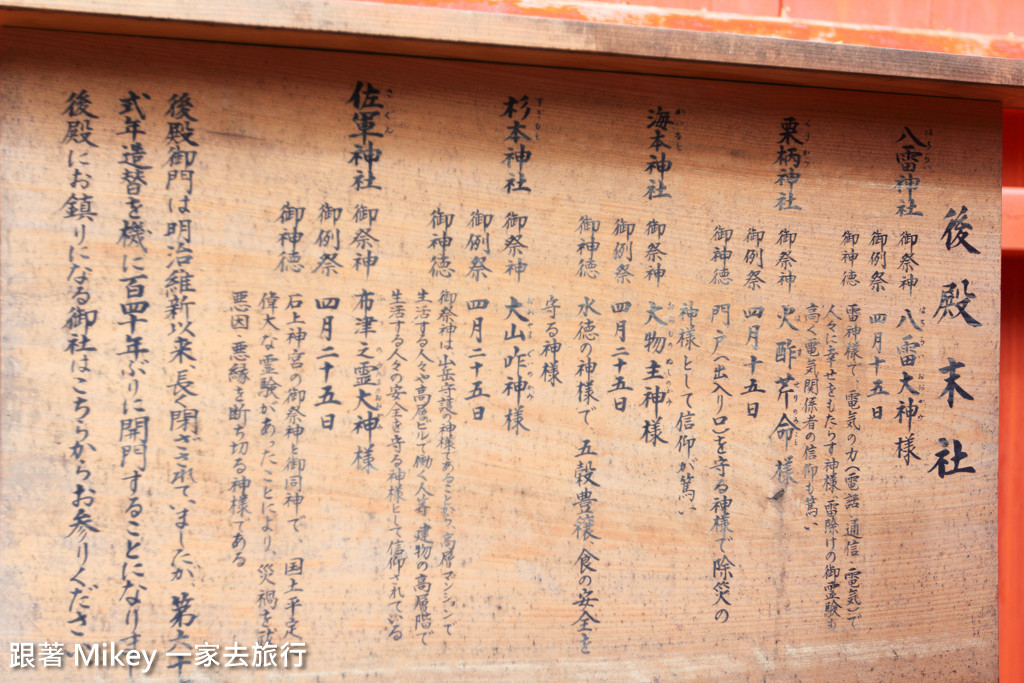 後殿末社
八雷神社
御祭神 八雷大神様
御例祭 四月十五日
御神徳 雷神様で、電気の力(電話 通信 電気)で
人々に幸せをもたらす神様 雷除けの御霊験も
高く電気関係者の信仰も篤い
栗柄神社
御祭神 火酢芹命様
御例祭 四月十五日
御神徳 門、戸(出入り口)を守る神様で除災の
神様として信仰が篤い
海本神社
御祭神 大物主神様
御例祭 四月二十五日
御神徳 水徳の神様で、五穀豊穣 食の安全を
守る神様
杉本神社
御祭神 大山咋神様
御例祭 四月二十五日
御神徳 御祭神は山岳守護の神様であることから、高層マンションで
生活する人々や高層ビルで働く人等 建物の高層階で
生活する人々の安全を守る神様として信仰されている
佐軍神社
御祭神 布津之霊大神様
御例祭 四月二十五日
御神徳 石上神宮の御祭神と御同神で、国土平定
偉大な霊験があったことにより、災禍を
悪因 悪縁を断ち切る神様である
後殿御門は明治維新以来長く閉ざされていましたが、第六十
式年造替を機に百四十年ぶりに開門することになりま
後殿にお鎮りになる御社はこちらからお参りくださ
跟著 Mikey 一家去旅行